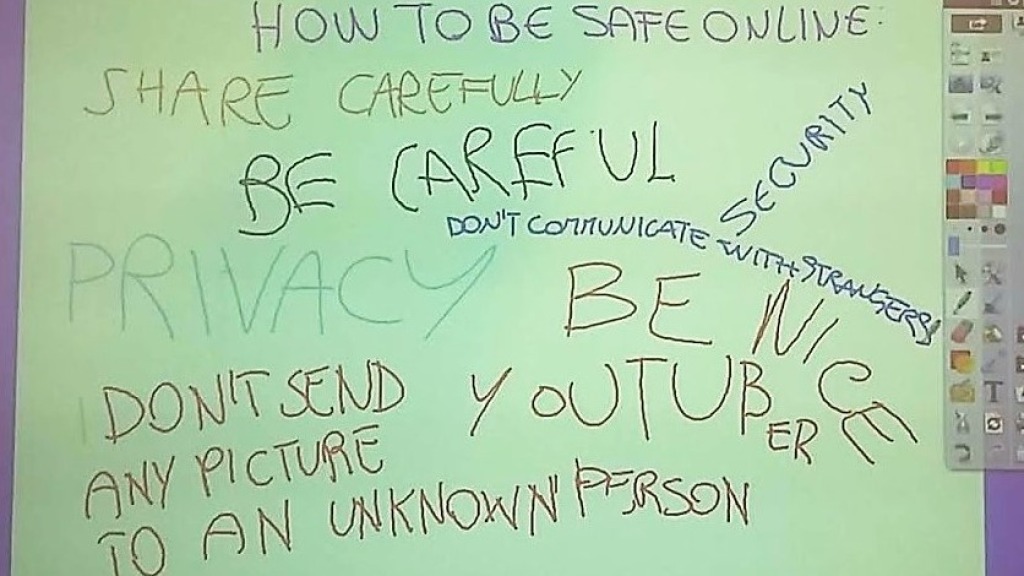 HOW TO BE SAFE ONLINE:
SHARE CAREFULLY
SECURITY
BE CAREFUL
DON'T COMMUNICATE WITH STRANGERS!
PRIVACY
BE NICE
DON'T SEND
ANY PICTURE
TO AN UNKNOWN PERSON
YOUTUBER
T